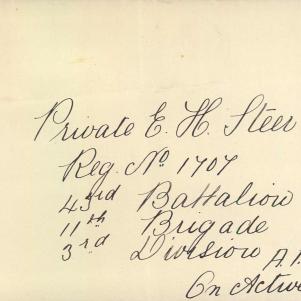 Private E. H. Steer
Reg. No 1707
43rd Battalion
11th Brigade
3rd Division A.
On Active